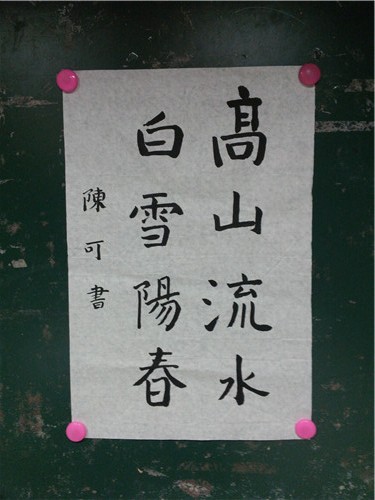 髙山流水
白雪陽春
陳可書